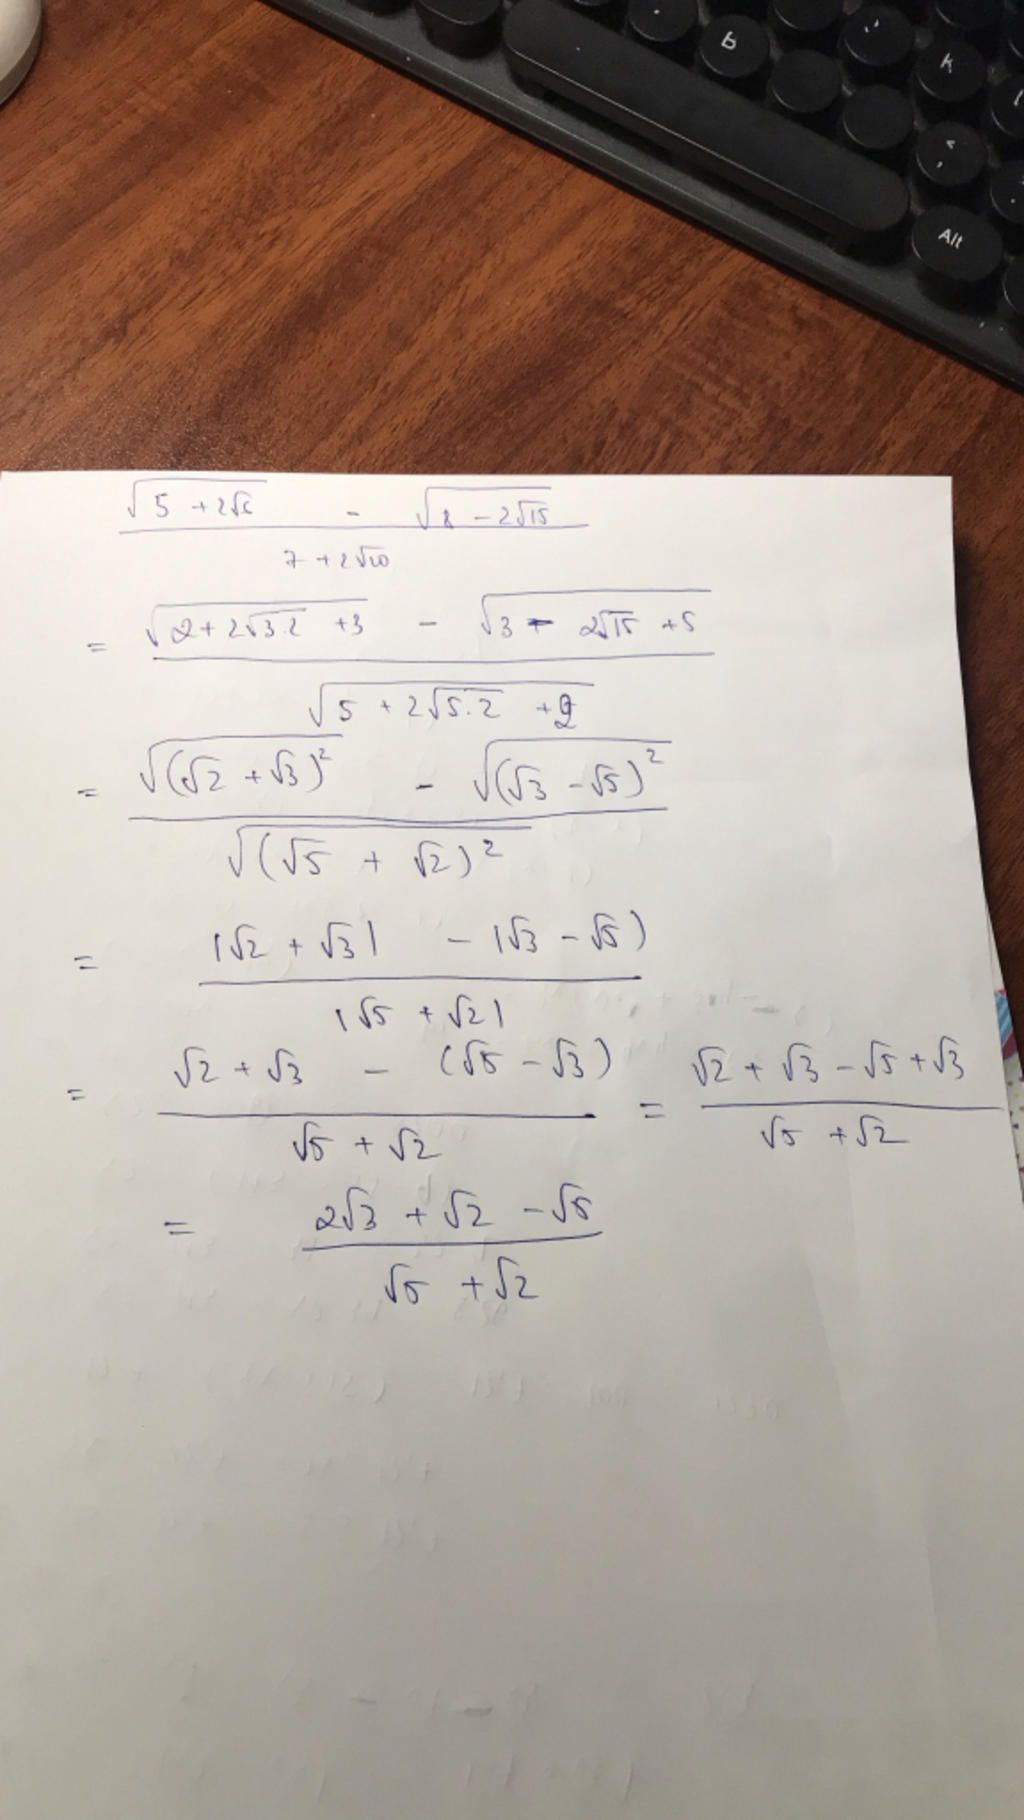 b
k
<
,
Alt
√(5 + 2√6) - √(8 - 2√15)
7 + 2√10
= √(2 + 2√3.2 + 3) - √(3 - 2√15 + 5)
√(5 + 2√5.2 + 2)
= √(√2 + √3)² - √(√3 - √5)²
√(√5 + √2)²
= |√2 + √3| - |√3 - √5)
|√5 + √2|
= √2 + √3 - (√5 - √3) = √2 + √3 - √5 + √3
√5 + √2 √5 + √2
= 2√3 + √2 - √5
√5 + √2